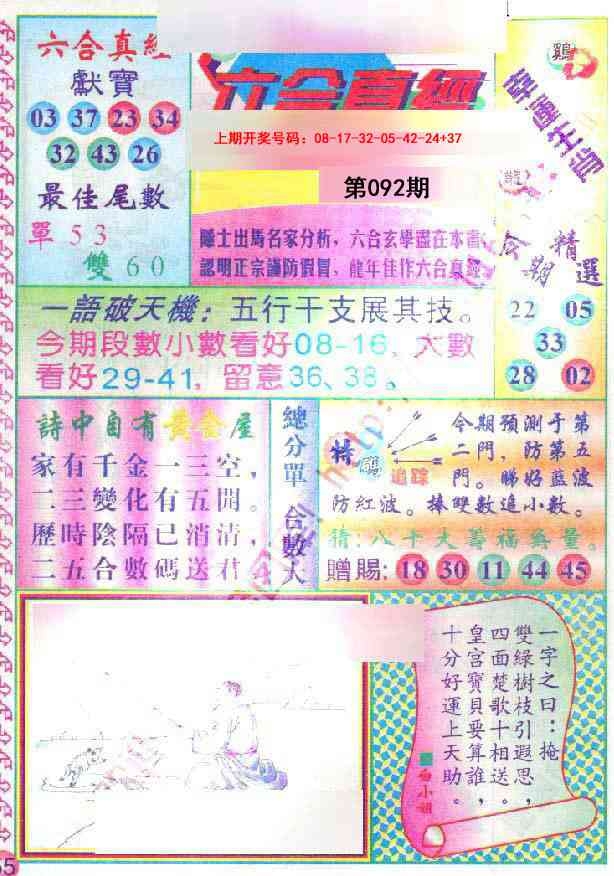 六合真經
獻寶
03 37 23 34
32 43 26
最佳尾數
單 5 3
雙 6 0
六合真經
上期开奖号码：08-17-32-05-42-24+37
第092期
隱士出馬名家分析，六合玄學盡在本書
認明正宗謹防假冒，龍年佳作六合真經
鷄
幸運生肖
期
精選
22 05
33
28 02
一語破天機：五行干支展其技。
今期段數小數看好08-16，大數
看好29-41，留意36、38。
詩中自有黃金屋
家有千金一三空，
二三變化有五開。
歷時陰隔已消清，
二五合數碼送君
總分單 合數大
特
追踪
今期預測于第
二門，防第五
門。睇好藍波
防紅波。捧雙數追小數。
猜：八十大壽福無量。
贈賜：18 30 11 44 45
一字之曰：掩
雙綠樹枝引遐思，
四面楚歌十相送。
皇宮寶貝要算誰，
十分好運上天助。
小姐